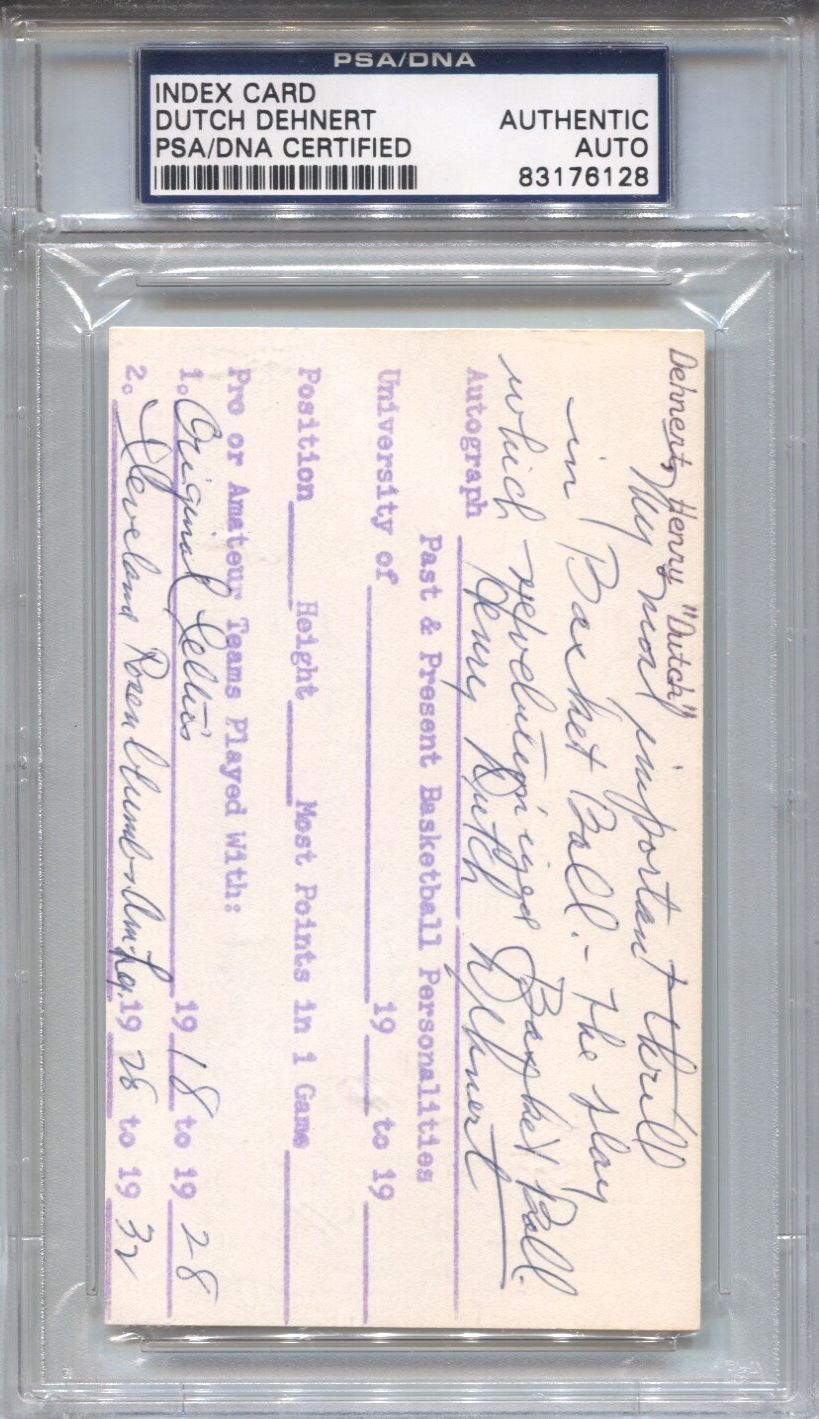 PSA/DNA
INDEX CARD
DUTCH DEHNERT AUTHENTIC
PSA/DNA CERTIFIED AUTO
83176128
Dehnert, Henry "Dutch"
My most important thrill
in Basket Ball. - The play
which revolution ized Basket Ball.
Autograph Henry Dutch Dehnert
Past & Present Basketball Personalities
University of ____ 19 ____ to 19 ____
Position ____ Height ____ Most Points in 1 Game ____
Pro or Amateur Teams Played With:
1. Original Celtics 19 18 to 19 28
2. Cleveland Rosenblums Am Lg. 19 28 to 19 32